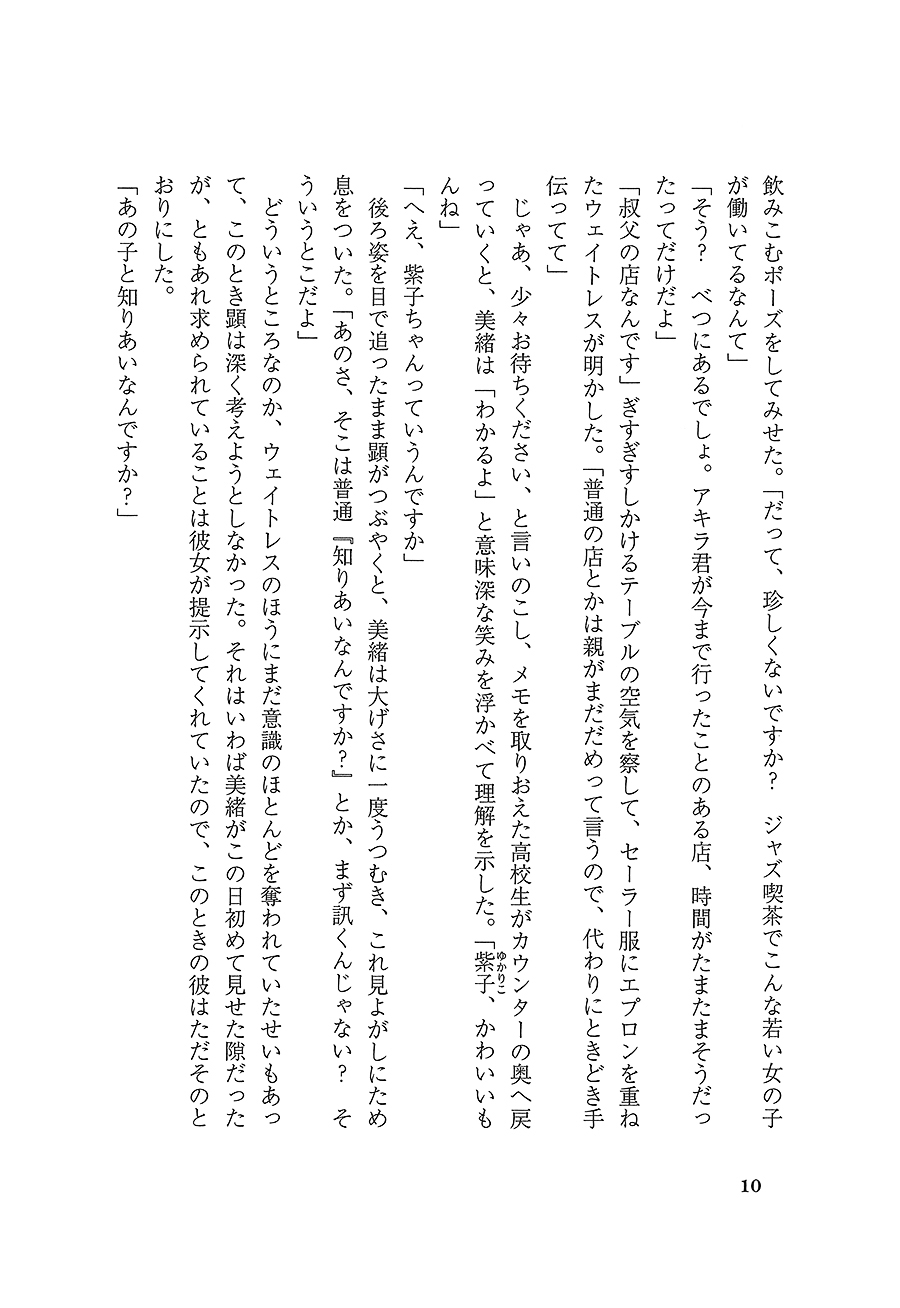 飲みこむポーズをしてみせた。「だって、珍しくないですか？　ジャズ喫茶でこんな若い女の子
が働いてるなんて」
「そう？　べつにあるでしょ。アキラ君が今まで行ったことのある店、時間がたまたまそうだっ
たってだけだよ」
「叔父の店なんです」ぎすぎすしかけるテーブルの空気を察して、セーラー服にエプロンを重ね
たウェイトレスが明かした。「普通の店とかは親がまだだめって言うので、代わりにときどき手
伝ってて」
　じゃあ、少々お待ちください、と言いのこし、メモを取りおえた高校生がカウンターの奥へ戻
っていくと、美緒は「わかるよ」と意味深な笑みを浮かべて理解を示した。「紫子、かわいいも
ゆかりこ
んね」
「へえ、紫子ちゃんっていうんですか」
　後ろ姿を目で追ったまま顕がつぶやくと、美緒は大げさに一度うつむき、これ見よがしにため
息をついた。「あのさ、そこは普通『知りあいなんですか？』とか、まず訊くんじゃない？　そ
ういうとこだよ」
　どういうところなのか、ウェイトレスのほうにまだ意識のほとんどを奪われていたせいもあっ
て、このとき顕は深く考えようとしなかった。それはいわば美緒がこの日初めて見せた隙だった
が、ともあれ求められていることは彼女が提示してくれていたので、このときの彼はただそのと
おりにした。
「あの子と知りあいなんですか？」
10